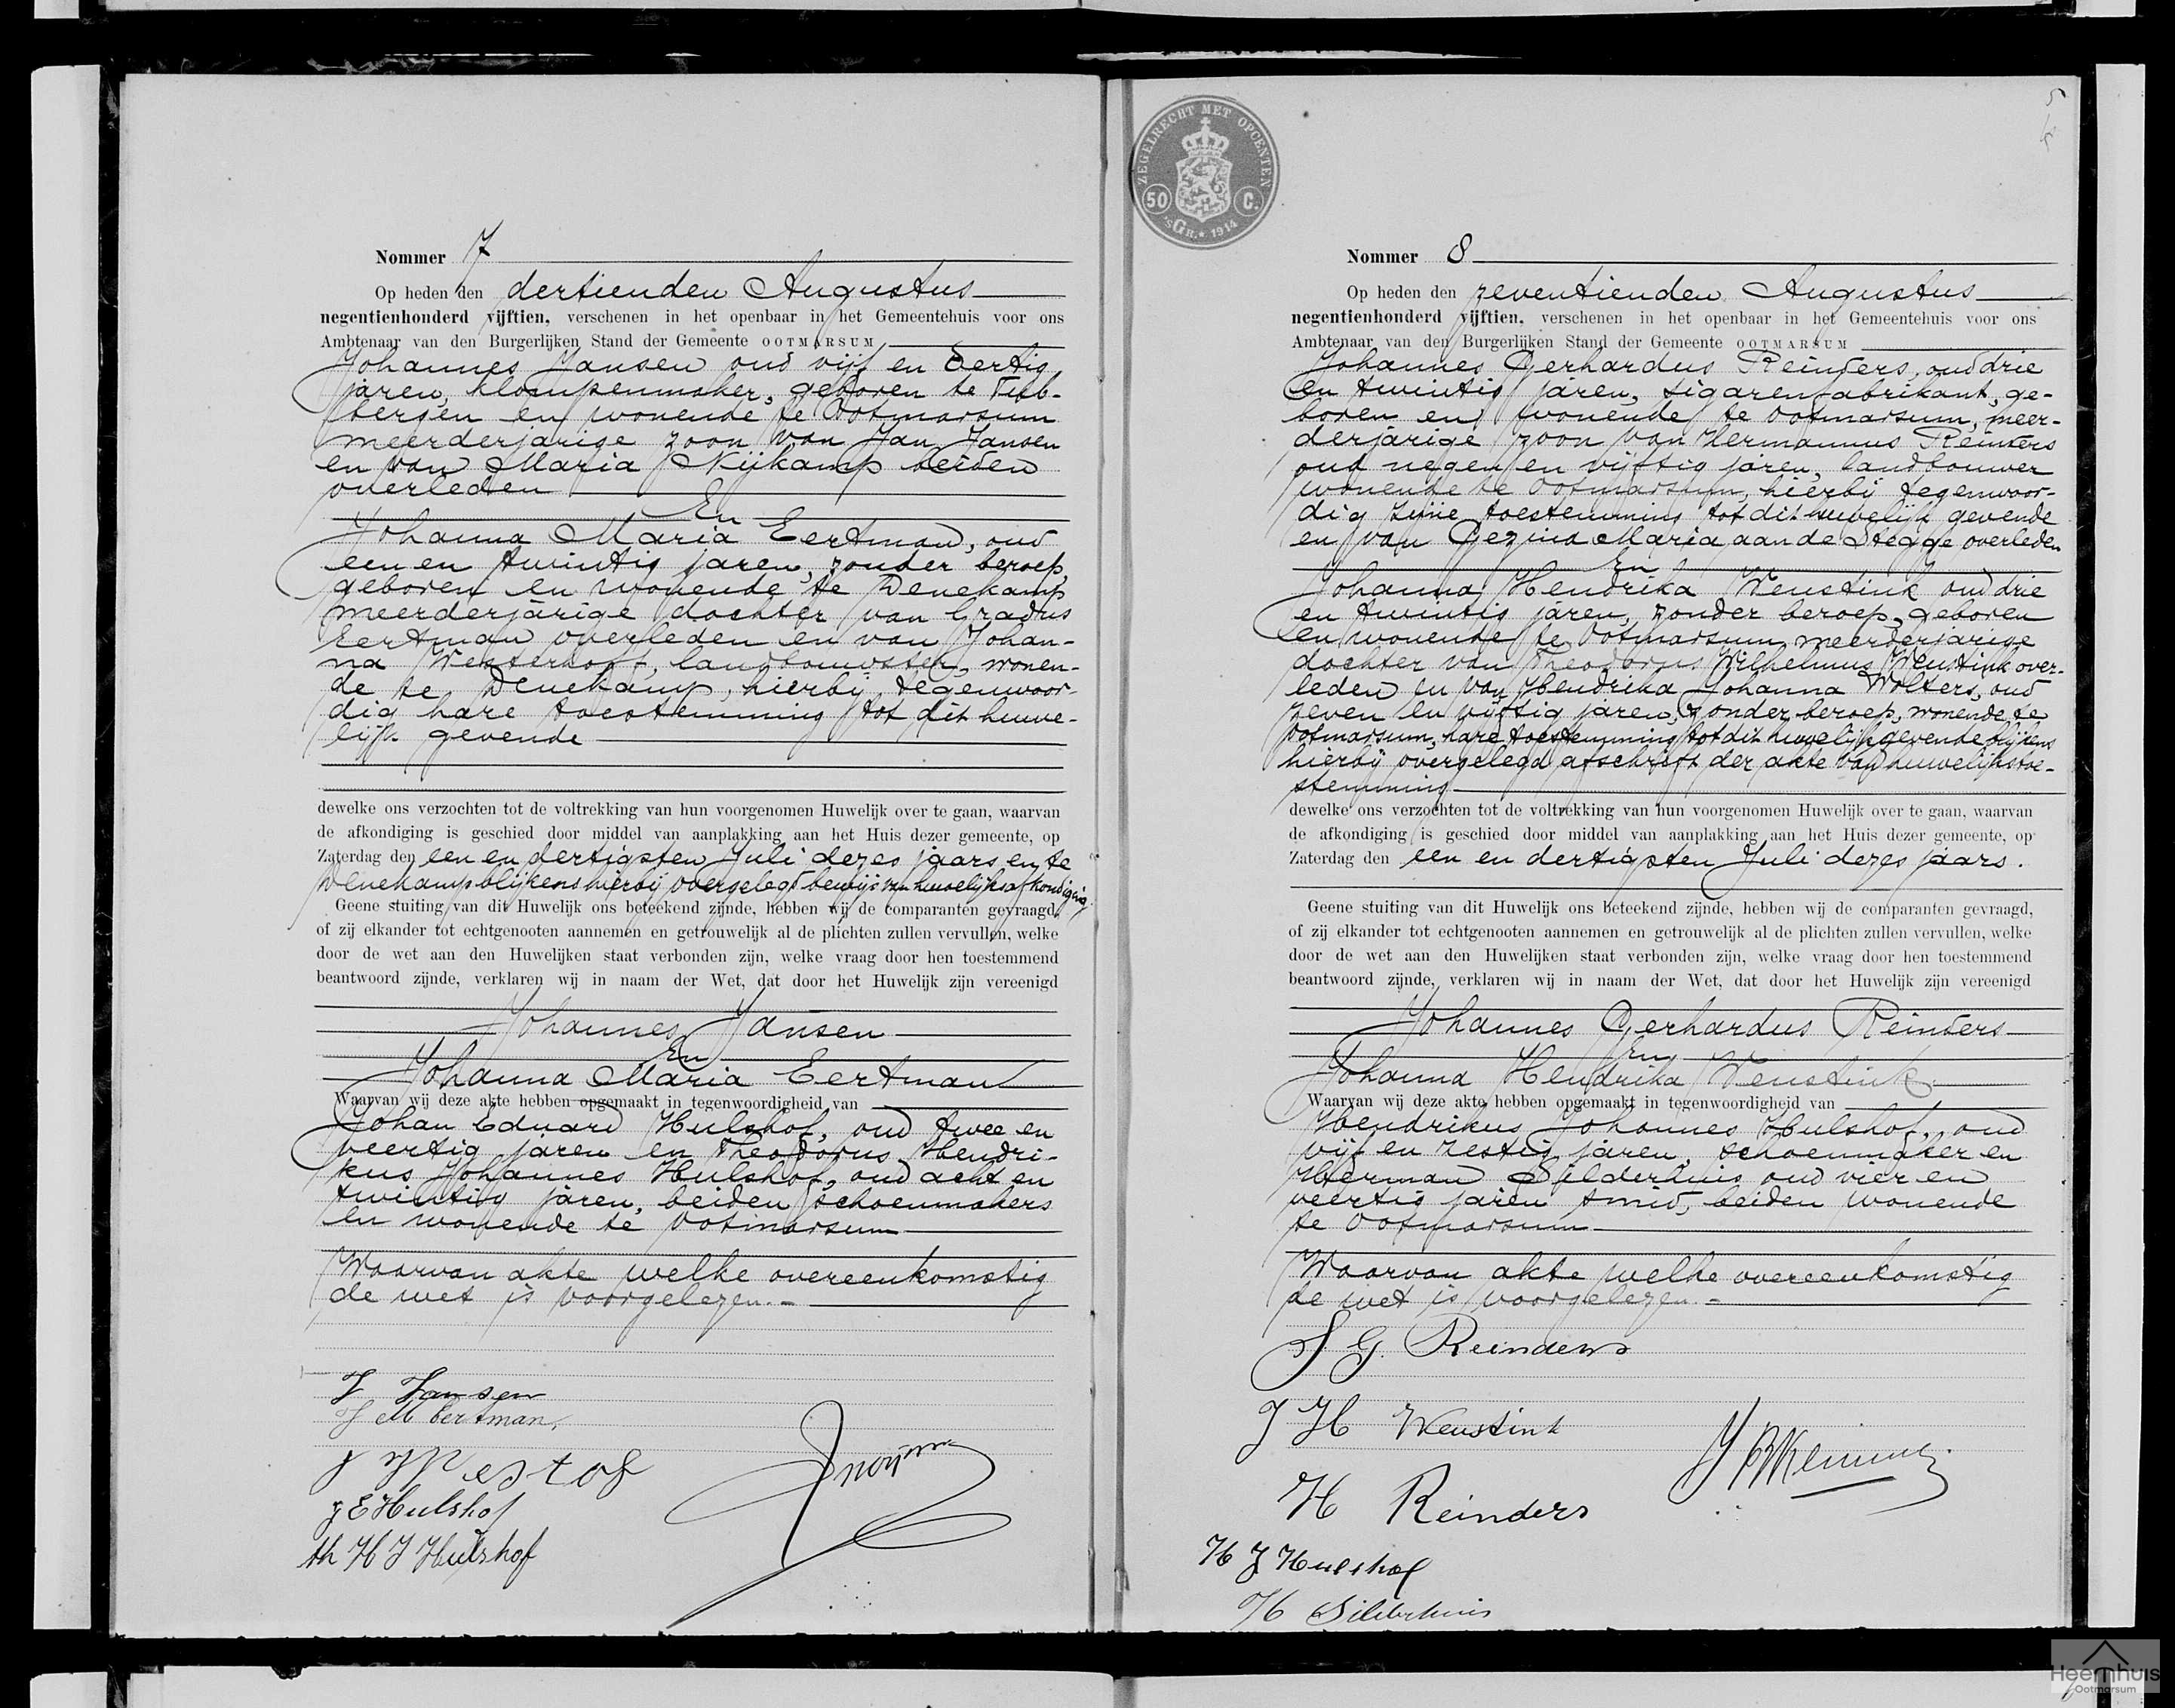 Nommer 7
Op heden den dertienden Augustus
negentienhonderd vijftien, verschenen in het openbaar in het Gemeentehuis voor ons
Ambtenaar van den Burgerlijken Stand der Gemeente OOTMARSUM
Johannes Jansen oud vijf en dertig
jaren, klompenmaker, geboren te Tub-
bergen en wonende te Ootmarsum
meerderjarige zoon van Jan Jansen
en van Maria Nijkamp beiden
overleden
En
Johanna Maria Eertman, oud
een en twintig jaren, zonder beroep,
geboren en wonende te Denekamp
meerderjarige dochter van Gradus
Eertman overleden en van Johan-
na Westerhof, landbouwster, wonen-
de te Denekamp, hierbij tegenwoor-
dig hare toestemming tot dit huwe-
lijk gevende
dewelke ons verzochten tot de voltrekking van hun voorgenomen Huwelijk over te gaan, waarvan
de afkondiging is geschied door middel van aanplakking aan het Huis dezer gemeente, op
Zaterdag den een en dertigsten Juli dezes jaars en te
Denekamp blijkens hierbij overgelegd bewijs van huwelijksafkondiging.
Geene stuiting van dit Huwelijk ons beteekend zijnde, hebben wij de comparanten gevraagd,
of zij elkander tot echtgenooten aannemen en getrouwelijk al de plichten zullen vervullen, welke
door de wet aan den Huwelijken staat verbonden zijn, welke vraag door hen toestemmend
beantwoord zijnde, verklaren wij in naam der Wet, dat door het Huwelijk zijn vereenigd
Johannes Jansen
En
Johanna Maria Eertman
Waarvan wij deze akte hebben opgemaakt in tegenwoordigheid van
Johan Eduard Hulshof, oud twee en
veertig jaren en Theodorus Hendri-
kus Johannes Hulshof, oud acht en
twintig jaren, beiden schoenmakers
en wonende te Ootmarsum
Waarvan akte welke overeenkomstig
de wet is voorgelezen.-
J Jansen
J M Eertman,
J E Hulshof
th H J Hulshof
ZEGELRECHT MET OPCENTEN
50 C.
'sGR. 1914
Nommer 8
Op heden den zeventienden Augustus
negentienhonderd vijftien, verschenen in het openbaar in het Gemeentehuis voor ons
Ambtenaar van den Burgerlijken Stand der Gemeente OOTMARSUM
Johannes Gerhardus Reinders, oud drie
en twintig jaren, sigarenfabrikant, ge-
boren en wonende te Ootmarsum, meer-
derjarige zoon van Hermannus Reinders
oud negen en vijftig jaren, landbouwer
wonende te Ootmarsum, hierbij tegenwoor-
dig zijne toestemming tot dit huwelijk gevende
en van Gezina Maria aan de Stegge overleden
En
Johanna Hendrika Weustink oud drie
en twintig jaren, zonder beroep, geboren
en wonende te Ootmarsum, meerderjarige
dochter van Theodorus Wilhelmus Weustink over-
leden en van Hendrika Johanna Wolters, oud
zeven en vijftig jaren, zonder beroep, wonende te
Ootmarsum, hare toestemming tot dit huwelijk gevende blijkens
hierbij overgelegd afschrift der akte van huwelijkstoe-
stemming
dewelke ons verzochten tot de voltrekking van hun voorgenomen Huwelijk over te gaan, waarvan
de afkondiging is geschied door middel van aanplakking aan het Huis dezer gemeente, op
Zaterdag den een en dertigsten Juli dezes jaars.
Geene stuiting van dit Huwelijk ons beteekend zijnde, hebben wij de comparanten gevraagd,
of zij elkander tot echtgenooten aannemen en getrouwelijk al de plichten zullen vervullen, welke
door de wet aan den Huwelijken staat verbonden zijn, welke vraag door hen toestemmend
beantwoord zijnde, verklaren wij in naam der Wet, dat door het Huwelijk zijn vereenigd
Johannes Gerhardus Reinders
En
Johanna Hendrika Weustink
Waarvan wij deze akte hebben opgemaakt in tegenwoordigheid van
Hendrikus Johannes Hulshof, oud
vijf en zestig jaren, schoenmaker en
Herman Silderhuis oud vier en
veertig jaren smid, beiden wonende
te Ootmarsum
Waarvan akte welke overeenkomstig
de wet is voorgelezen.-
J G. Reinders
J H Weustink
H Reinders
H J Hulshof
H Silderhuis
Heemhuis
Ootmarsum